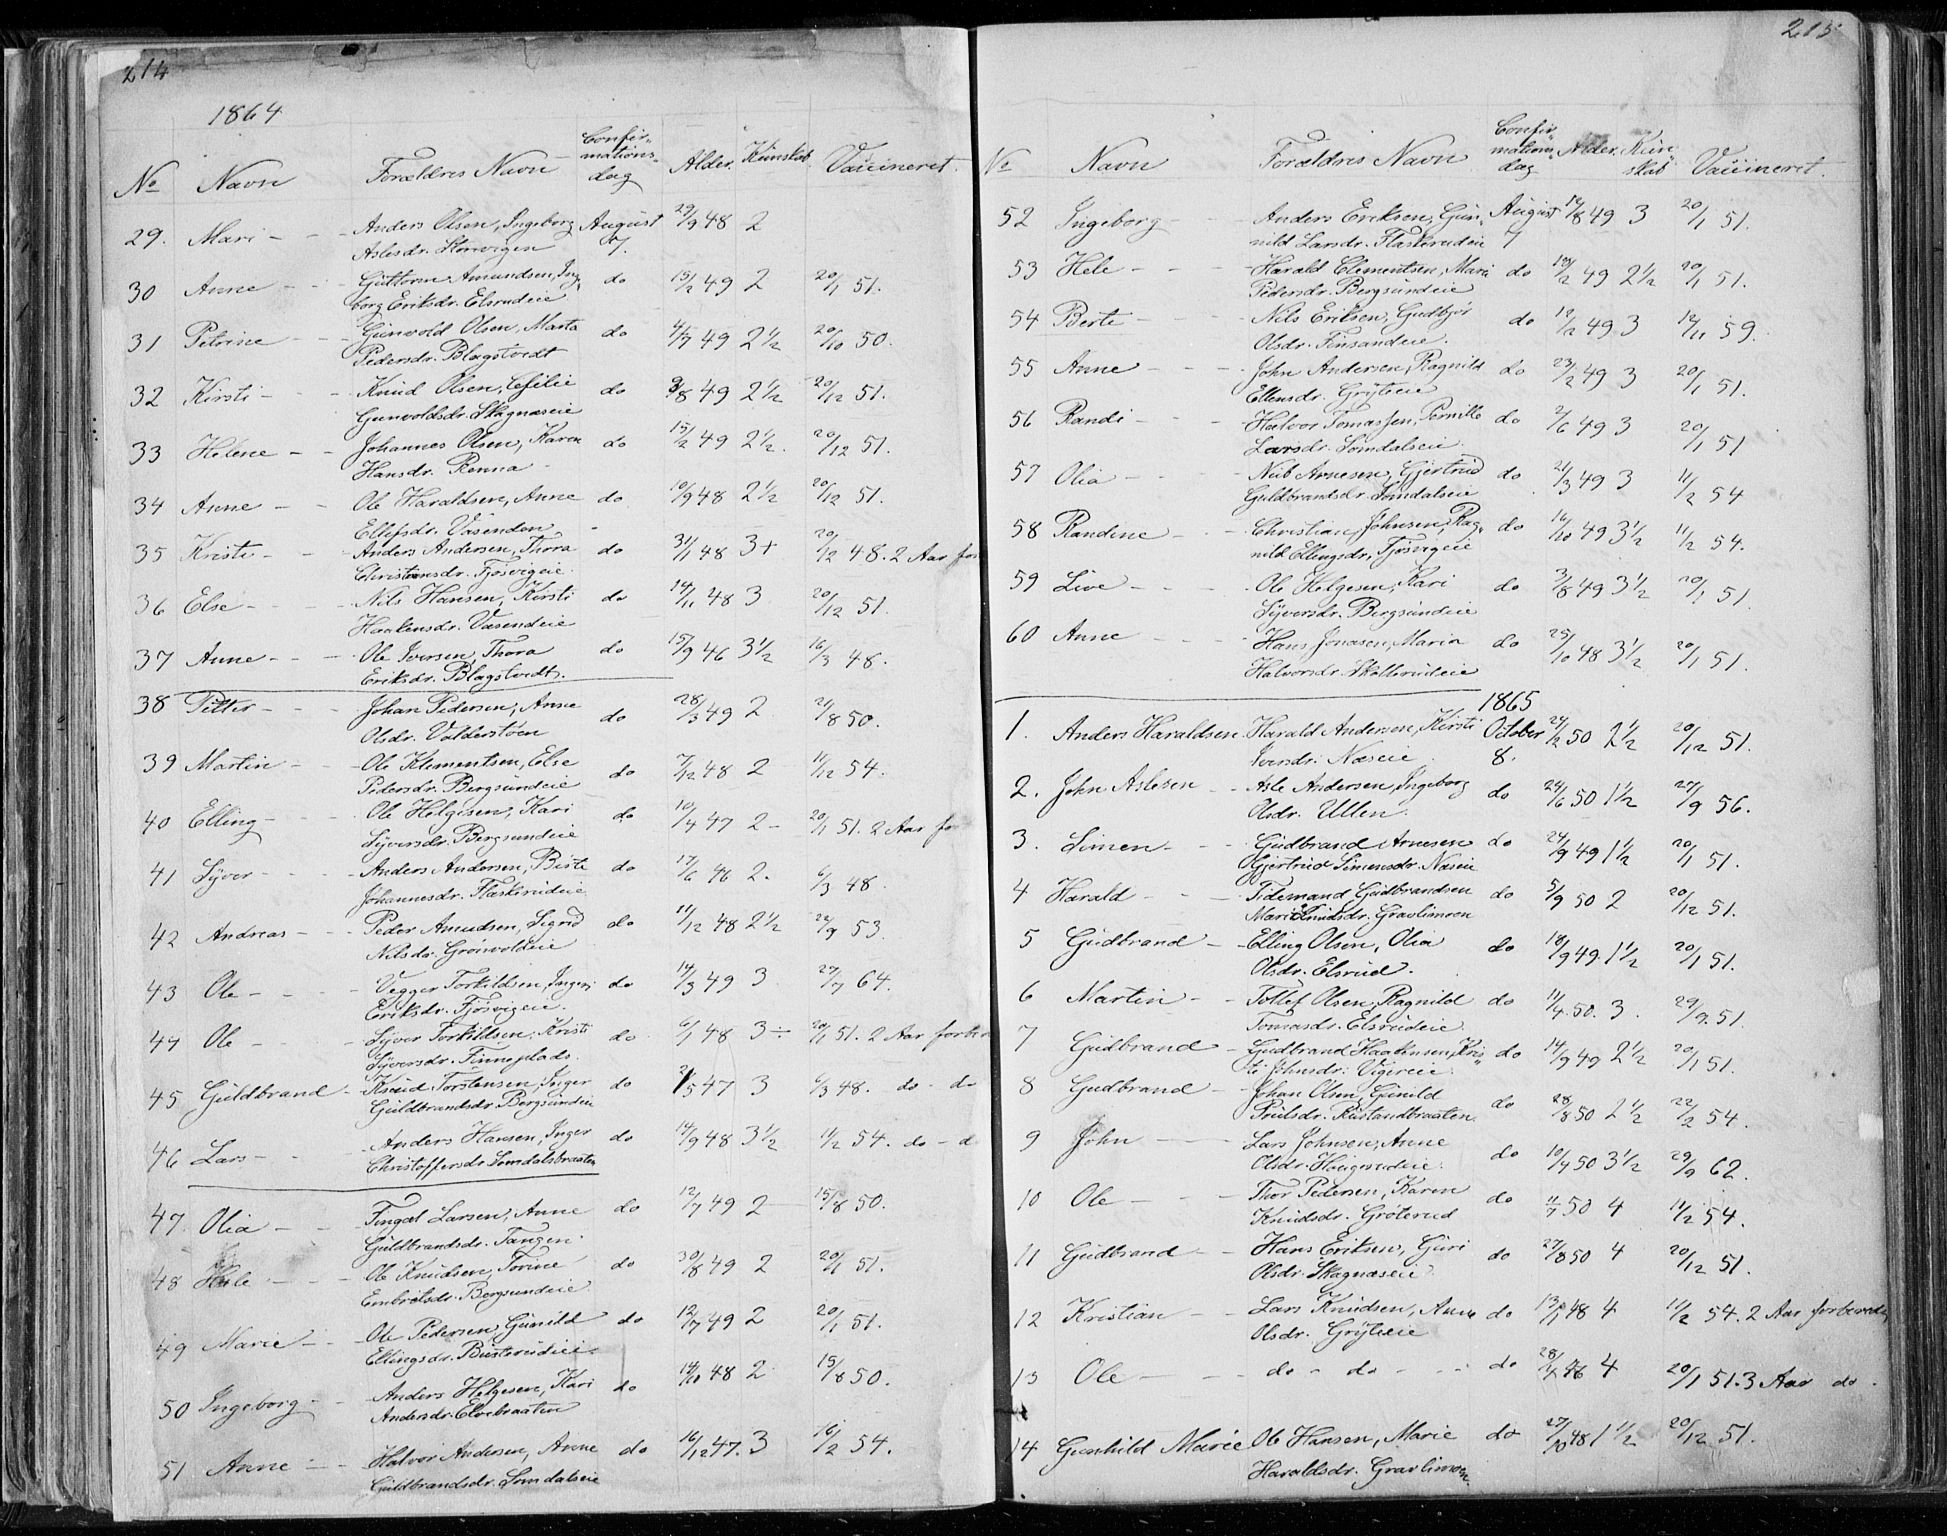 214
1864
№ Navn Forældres Navn Confir-mations-dag Alder. Künskab Vaccineret.
29. Mari - - Anders Olsen, Ingeborg August 29/9 48 2
Aslesdr. Storvigen 7.
30 Anne - - Guttorm Amundsen, Inge- do 15/2 49 2 20/1 51.
borg Eriksdr. Elsrudeie
31 Petrine - - Gunvold Olsen, Marta do 4/7 49 2½ 20/10 50.
Pedersdr. Blagstvedt
32 Kirsti - - Knud Olsen, Cesilie do 3/8 49 2½ 20/12 51.
Gunvoldsdr. Skagnæseie
33 Helene - - Johannes Olsen, Karen do 15/2 49 2½. 20/12 51.
Hansdr. Renna -
34 Anne - - Ole Haraldsen, Anne do 10/9 48 2½ 20/12 51.
Ellefsdr. Væsenden -
35 Kristi - - Anders Andersen, Thora do 31/1 48 3+ 20/12 48. 2 Aar for
Christiansdr. Fjösvigeie.
36 Else - - Nils Hansen, Kirsti do 14/11 48 3 20/12 51.
Haakensdr. Væsendeie
37 Anne - - Ole Iversen, Thora do 15/9 46 3½ 16/3 48.
Eriksdr. Blagstvedt.
38 Petter - - Johan Pedersen, Anne do 28/3 49 2 21/8 50.
Olsdr. Valderstöen
39 Martin - - Ole Klementsen, Else do 7/12 48 2 11/12 54.
Pedersdr. Bergsundeie
40 Elling - - Ole Helgesen, Kari do 10/4 47 2 - 20/1 51. 2 Aar for
Syversdr. Bergsundeie
41 Syver - - Anders Andersen, Birte do 17/6 46 2. 6/3 48.
Johannesdr. Flaskerudeie
42 Andreas - - Peder Amudsen, Sigrid do 11/12 48 2½ 24/9 53.
Nilsdr. Grönvoldeie
43 Ole - - Vegger Torkildsen, Inger do 14/3 49 3 27/7 64.
Eriksdr. Fjösvigeie.
44 Ole - - Syver Torkildsen, Kristi do 6/1 48 3÷ 20/1 51. 2 Aar forbe
Syversdr. Finneplads.
45 Guldbrand - Knud Torstensen, Inger do 2/5 47 3 6/3 48. do - do
Guldbrandsdr. Bergsundeie
46 Lars - - Anders Hansen, Inger do 14/9 48 3½ 11/2 54. do - d
Christoffersdr. Somdalsbraaten
47. Olia - - Fingal Larsen, Anne do 12/7 49 2 15/8 50.
Guldbrandsdr. Tangen.
48 Hele - - Ole Knudsen, Torine do 30/8 49 2 20/1 51.
Embretsdr. Bergsundeie
49 Marie - - Ole Pedersen, Gunild do 12/7 49 2 20/1 51.
Ellingsdr. Busterudeie.
50 Ingeborg - Anders Helgesen, Kari do 14/11 48 2 15/8 50.
Andersdr. Elvebraaten
51 Anne - - Halvor Andersen, Anne do 16/12 47. 3 16/2 54.
Guldbrandsdr. Somdalseie
215
№ Navn Forældres Navn Confir-mations-dag Alder. Kün-skab Vaccineret.
52 Ingeborg - - Anders Eriksen, Gun- August 12/8 49 3 20/1 51.
nild Larsdr. Flaskerudeie 7
53 Hele - - Harald Clementsen, Mari do 18/2 49 2½ 20/1 51.
Pedersdr. Bergsundeie
54 Berte - - Nils Eriksen, Gudbjör do 12/2 49 3 12/11 59.
Olsdr. Finsandeie.
55 Anne - - John Andersen, Ragnild do 23/2 49 3 20/1 51.
Ellensdr. Gryteeie
56 Randi - - Halvor Tomassen, Pernille do 2/6 49 3 20/1 51
Larsdr. Somdalseie
57 Olia - - Nub Arnesen, Gjertrud do 21/3 49 3 11/2 54
Guldbrandsdr. Somdalseie
58 Randine - - Christian Johnsen, Rag- do 16/10 49 3½ 11/2 54.
nild Ellingsdr. Fjösvigeie
59 Live - - Ole Helgesen, Kari do 3/8 49 3½ 20/1 51.
Syversdr. Bergsundeie
60 Anne - - Hans Jonasen, Maria do 25/10 48 3½ 20/1 51.
Halvorsdr. Skollerudeie
1865
1. Anders Haraldsen Harald Andersen, Kirsti October 24/2 50 2½ 20/12 51.
Iversdr. Næseie 8.
2. John Aslesen - Asle Andersen, Ingeborg do 24/6 50 1½ 27/9 56.
Olsdr. Ullen.
3. Simen - - Gudbrand Arnesen do 24/9 49 1½ 20/1 51.
Gjertrud Simensdr. Næseie
4 Harald - - Tidemand Gudbrandsen do 5/9 50 2 20/12 51.
Mari Knudsdr. Gravlimoen
5 Gudbrand - Elling Olsen, Olia do 18/9 49 1½ 20/1 51.
Olsdr. Elsrud.
6 Martin - - Tollef Olsen, Ragnild do 11/4 50. 3. 29/9 51.
Tomasdr. Elsrudeie
7 Gudbrand - Gudbrand Haakensen, Kris- do 14/9 49 2½ 20/1 51.
ti Johnsdr. Vigereie
8 Gudbrand - Johan Olsen, Gunild do 28/8 50 2½ 22/2 54.
Paulsdr. Kustandbraaten
9 John - - Lars Johnsen, Anne do 10/4 50 3½ 29/9 62.
Olsdr. Haugerudeie.
10 Ole - - Thor Pedersen, Karen do 11/7 50 4 11/2 54.
Knudsdr. Gröterud
11 Gudbrand - - Hans Eriksen, Guri do 27/8 50 4 20/12 51.
Olsdr. Skagnæseie
12 Kristian - - Lars Knudsen, Anne do 13/1 48 4 11/2 54. 2 Aar forbered.
Olsdr. Gryteeie
13 Ole - - do - do - - do 28/4 46 4 20/1 51. 3 Aar do.
14 Gunhild Marie Ole Hansen, Marie do 27/10 48 1½ 20/12 51.
Haraldsdr. Gravlimoen